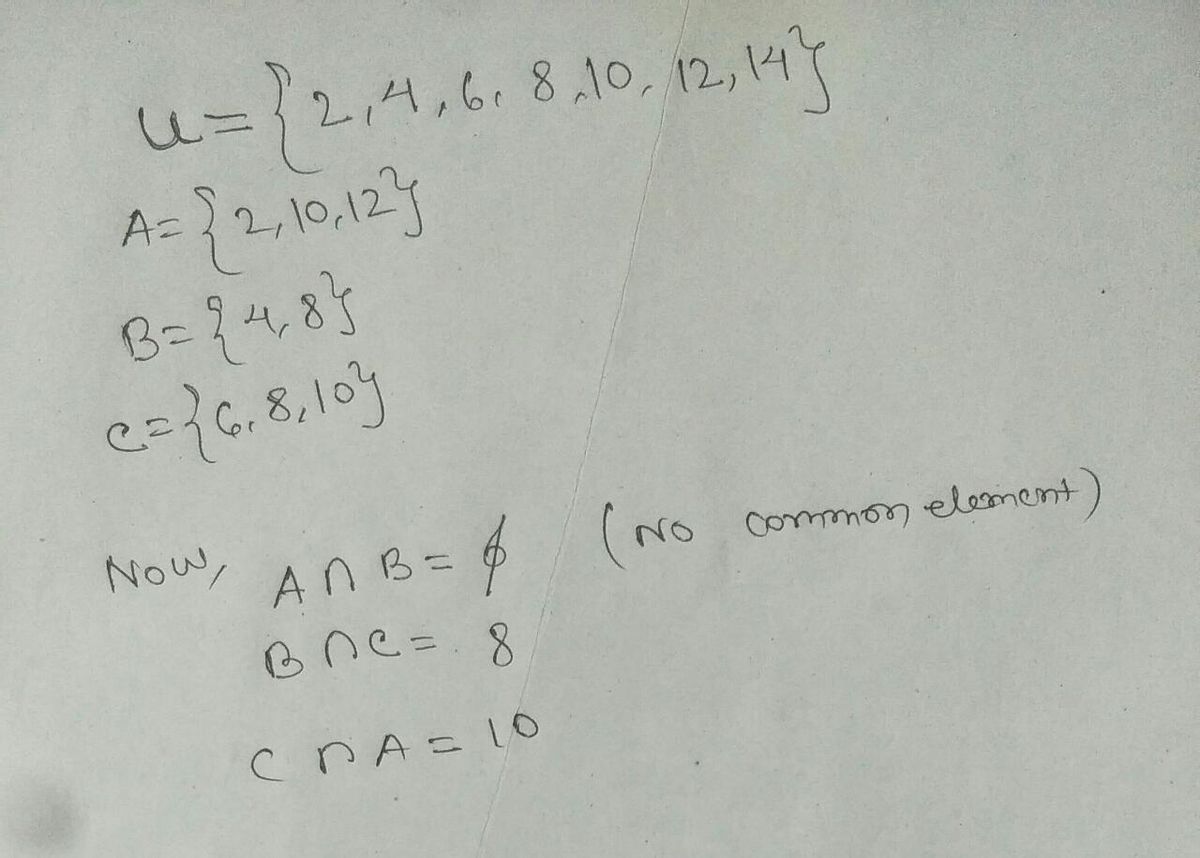 U={2,4,6,8,10,12,14}
A={2,10,12}
B={4,8}
C={6,8,10}
Now, A∩B=ϕ (No common element)
B∩C=8
C∩A=10